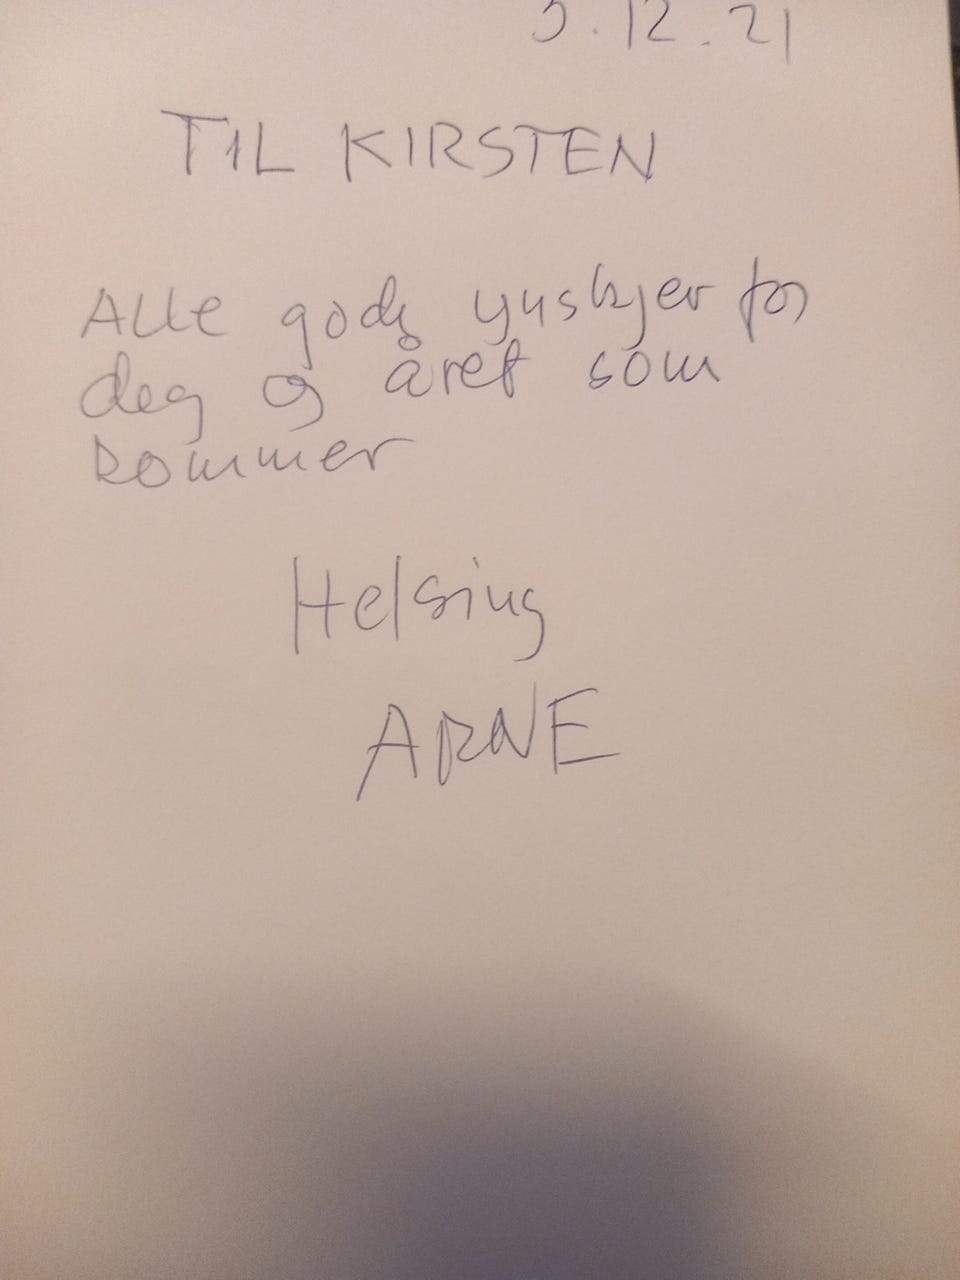 5.12.21
TIL KIRSTEN
Alle gode ynskjer for
deg og året som
kommer
Helsing
ARNE